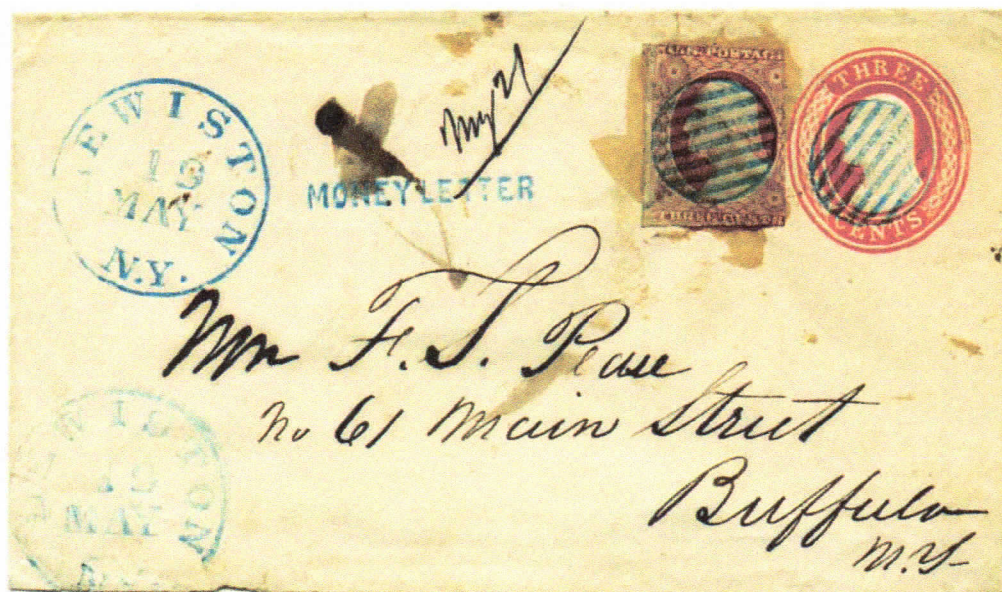 LEWISTON
MAY
N.Y.
MONEY LETTER
U.S. POSTAGE
THREE CENTS
THREE
CENTS
F. S. Pease
No 61 Main Street
Buffalo
N.Y.
LEWISTON
MAY